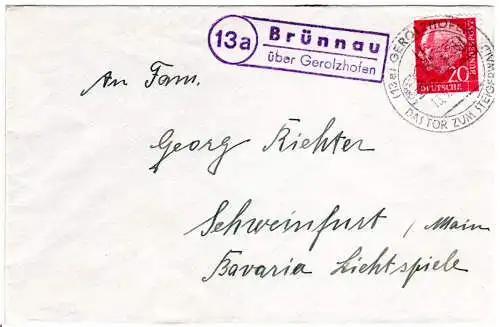 13a
Brünnau
über Gerolzhofen
(13a) GEROLZHOFEN
DAS TOR ZUM STEIGERWALD
20
DEUTSCHE
BUNDESPOST
An Fam.
Georg Richter
Schweinfurt / Main
Bavaria Lichtspiele